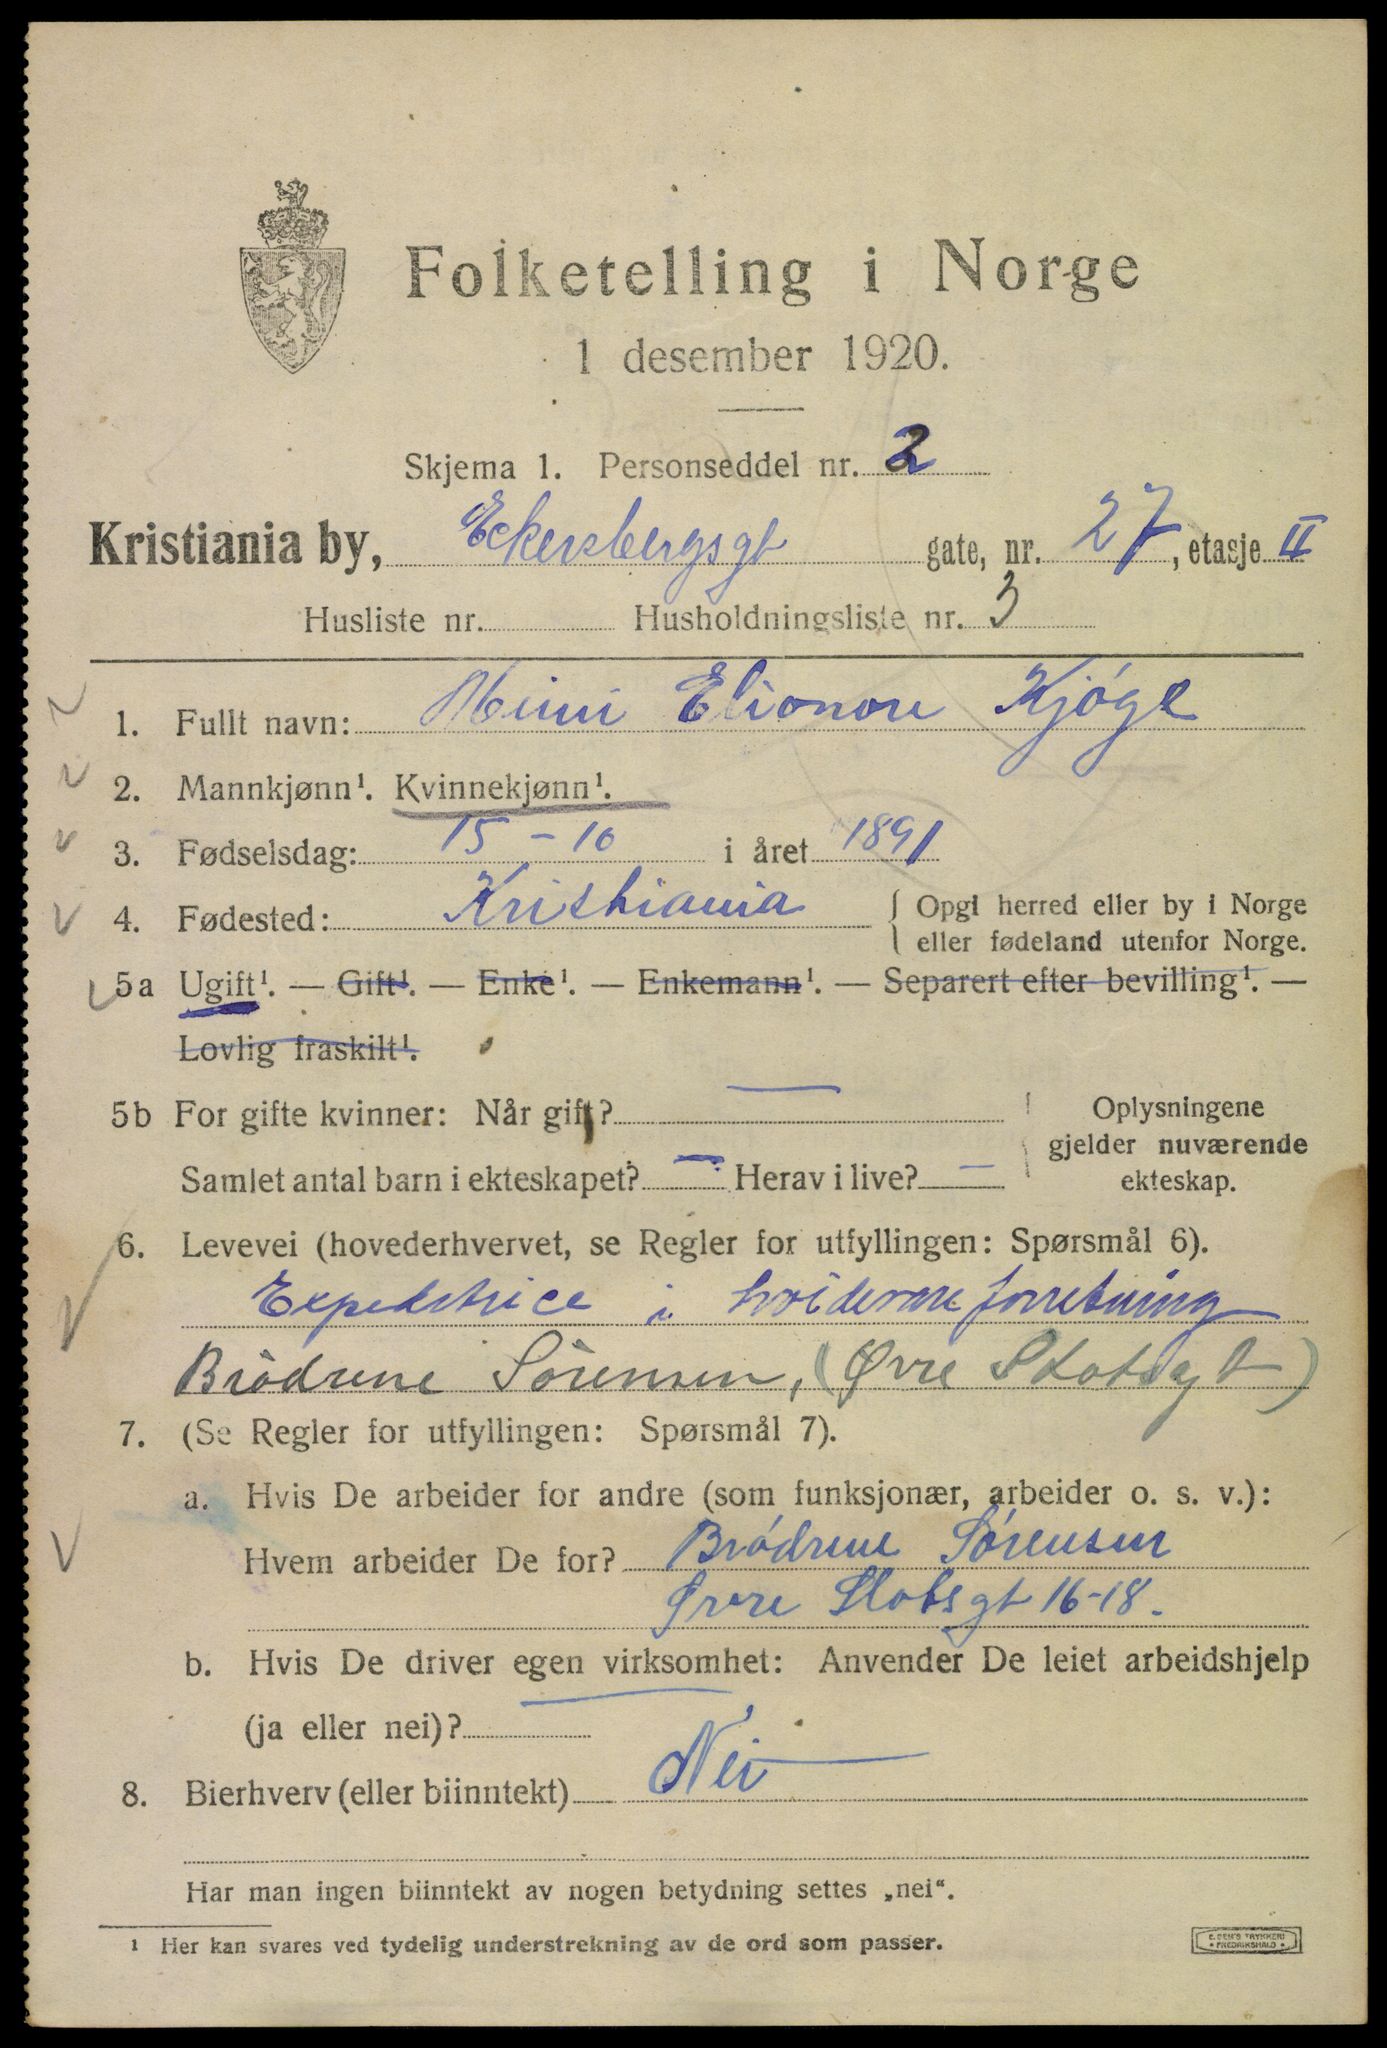 Folketelling i Norge
1 desember 1920.
Skjema 1. Personseddel nr. 2
Kristiania by, Eckersbergsgt gate, nr. 27, etasje II
Husliste nr. Husholdningsliste nr. 3
1. Fullt navn: Mimi Elionore Kjøge
2. Mannkjønn¹. Kvinnekjønn¹.
3. Fødselsdag: 15 - 10 i året 1891
4. Fødested: Kristiania { Opgi herred eller by i Norge
eller fødeland utenfor Norge.
5a Ugift¹. — Gift¹. — Enke¹. — Enkemann¹. — Separert efter bevilling¹. —
Lovlig fraskilt¹.
5b For gifte kvinner: Når gift? — Oplysningene
gjelder nuværende
Samlet antal barn i ekteskapet? — Herav i live? — ekteskap.
6. Levevei (hovederhvervet, se Regler for utfyllingen: Spørsmål 6).
Expeditrice i hvidevareforretning
Brödrene Sörensen, (Øvre Slotsgt)
7. (Se Regler for utfyllingen: Spørsmål 7).
a. Hvis De arbeider for andre (som funksjonær, arbeider o. s. v.):
Hvem arbeider De for? Brødrene Sørensen
Øvre Slotsgt 16-18.
b. Hvis De driver egen virksomhet: Anvender De leiet arbeidshjelp
(ja eller nei)?
8. Bierhverv (eller biinntekt) Nei
Har man ingen biinntekt av nogen betydning settes „nei“.
¹ Her kan svares ved tydelig understrekning av de ord som passer.